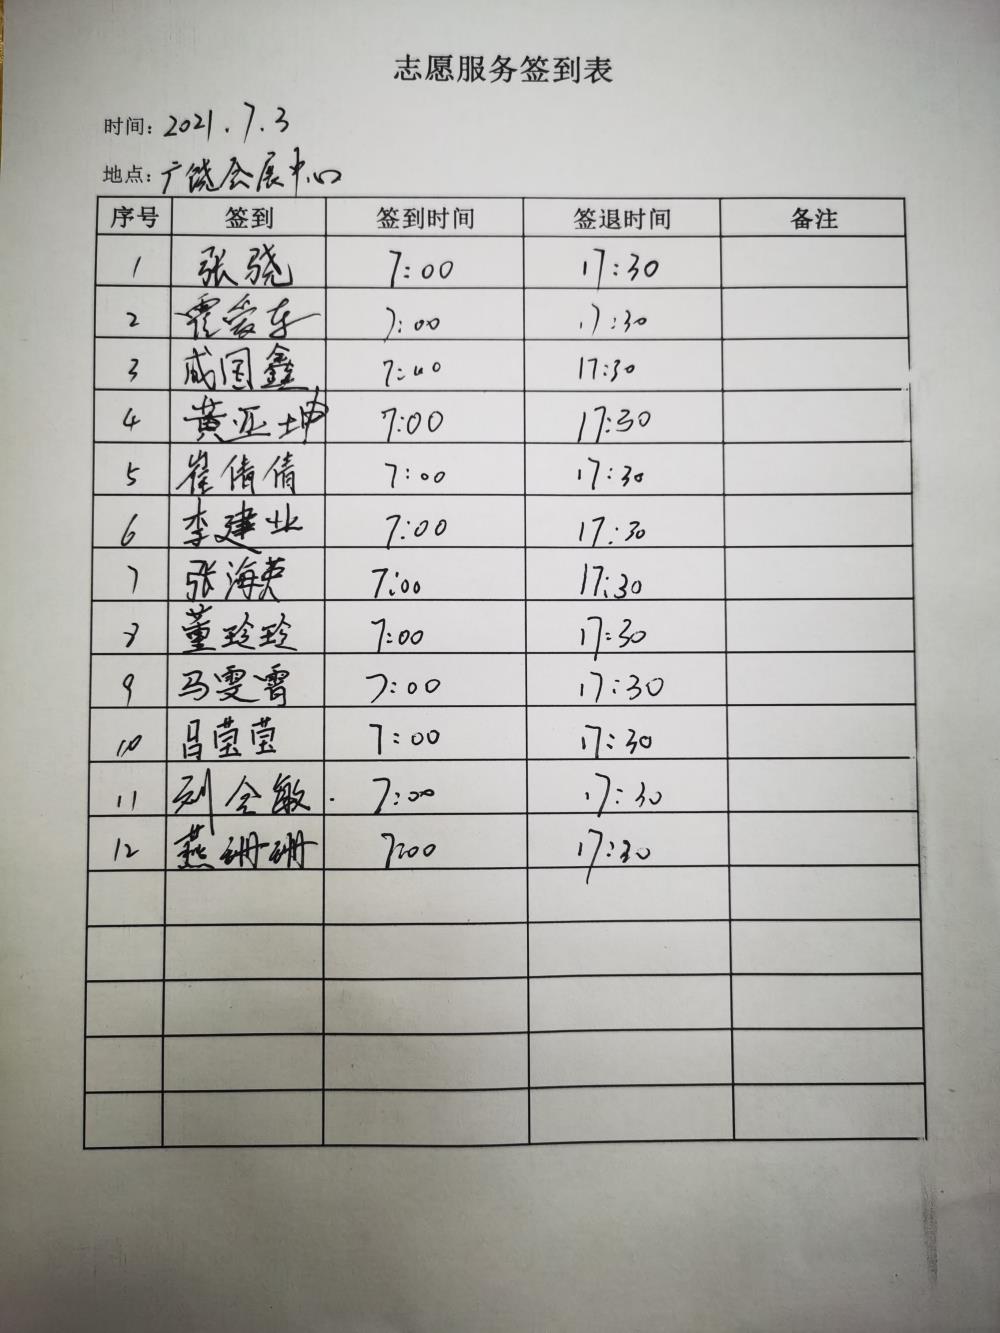 志愿服务签到表
时间：2021.7.3
地点：广饶会展中心
序号 签到 签到时间 签退时间 备注
1 张骁 7:00 17:30
2 霍爱东 7:00 17:30
3 咸国鑫 7:00 17:30
4 黄亚坤 7:00 17:30
5 崔倩倩 7:00 17:30
6 李建业 7:00 17:30
7 张海英 7:00 17:30
8 董玲玲 7:00 17:30
9 马雯霄 7:00 17:30
10 吕莹莹 7:00 17:30
11 刘会敏 7:00 17:30
12 燕珊珊 7:00 17:30